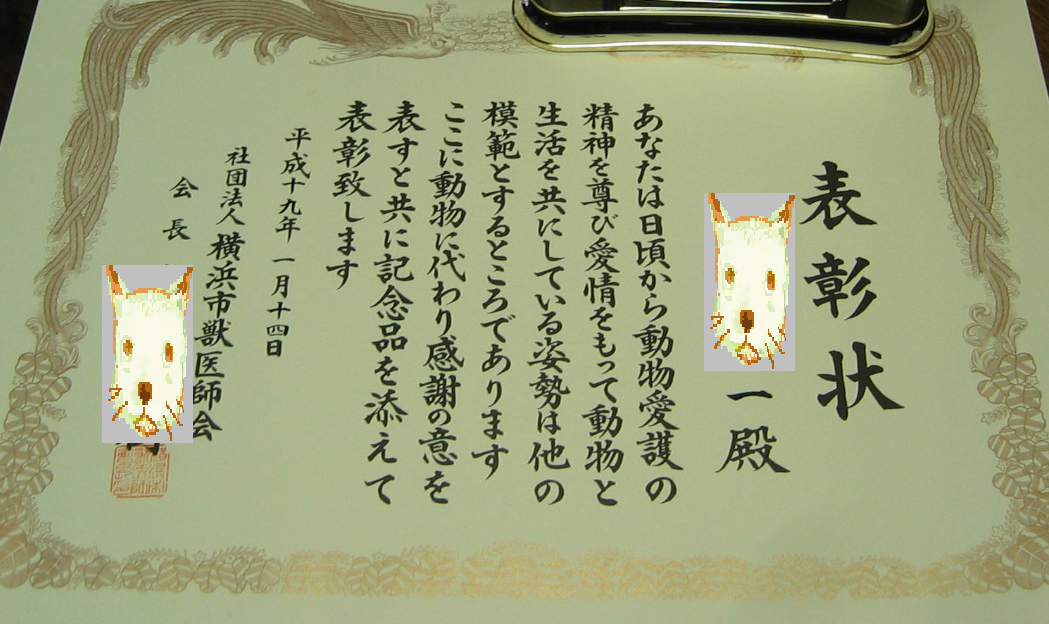 表彰状
一殿
あなたは日頃から動物愛護の
精神を尊び愛情をもって動物と
生活を共にしている姿勢は他の
模範とするところであります
ここに動物に代わり感謝の意を
表すと共に記念品を添えて
表彰致します
平成十九年一月十四日
社団法人横浜市獣医師会
会長